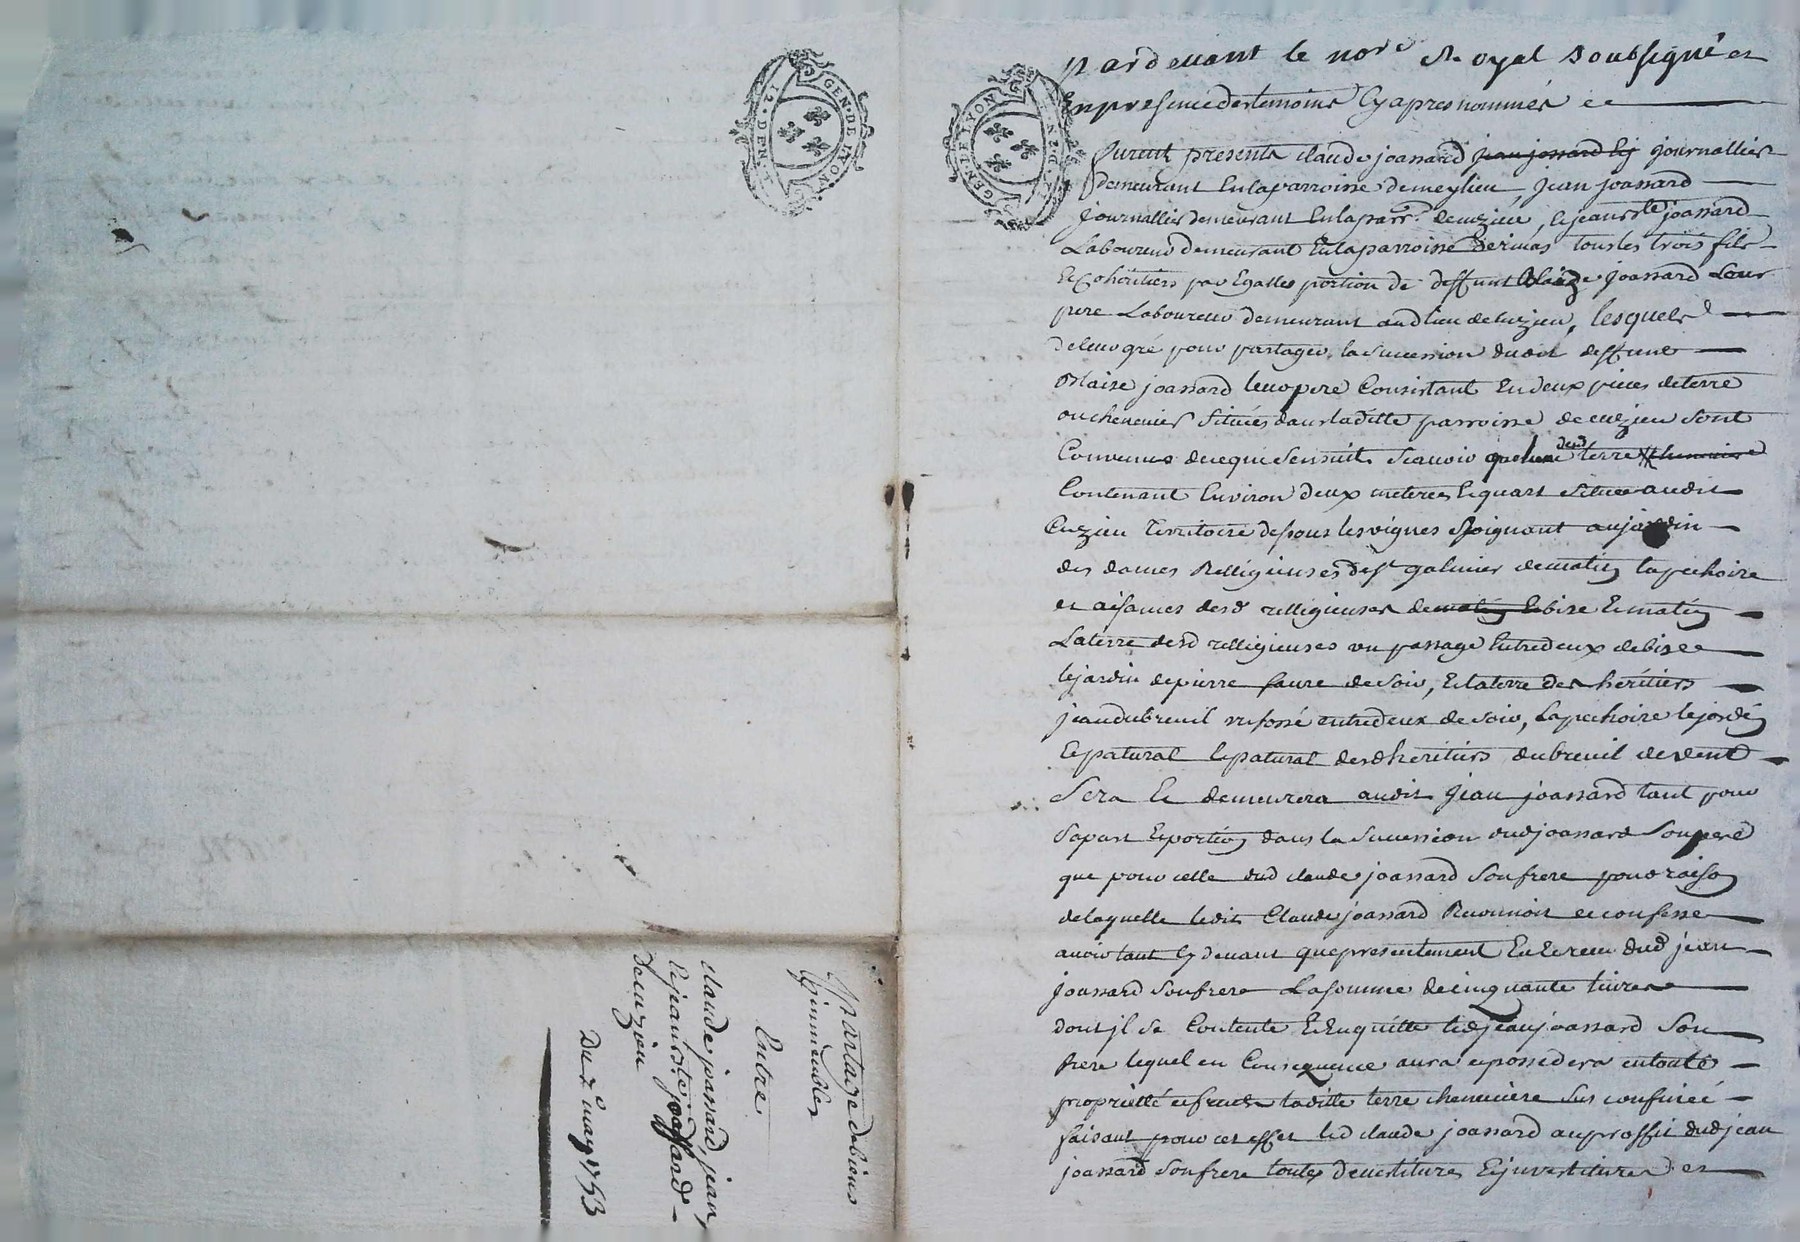 GEN. DE LYON
GEN. DE LYON
Partage de biens
immeubles
Entre
claude joassard, jean
et jean bte joassard
de cuzieu
Du 7e may 1753
Pardevant le nore Royal soubsigné et
En presence des temoins Cy apres nommés
Furent presents claude joassard jean jossard et journallier
demeurant En la parroisse de meylieu, jean joassard
journallier demeurant En la parr. de cuzieu, et jean bte joassard
Laboureur demeurant En la parroisse de rivas tous les trois fils
Et Cohéritiers par Egalles portion de deffunt Blaize joassard Leur
pere Laboureur demeurant aud lieu de Cuzieu, lesquels
de leur gré pour partager la succession dudit deffunt
Blaise joassard leur pere Consistant En deux pieces de terre
ou chenevier situées dans laditte parroisse de cuzieu sont
Convenus de ce qui Sensuit Scavoir que terre
Contenant Environ deux meterées Et quart située audit
Cuzieu Territoire dessous les vignes joignant au jardin
des dames Relligieuses de st galmier de matin la pechoire
et aisances desd relligieuses de matin et bise Et matin
La terre desd relligieuses un passage Entredeux de bise
le jardin de pierre faure de soir, Et la terre des héritiers
jean dubreuil un fossé entredeux de soir, La pechoire le jardin
Et patural Et patural desd heritiers dubreuil de vent
Sera Et demeurera audit jean joassard tant pour
Sa part Et portion dans la Succession dud joassard Son pere
que pour celle dud claude joassard Son frere pour raison
de laquelle ledit Claude joassard Reconnoit et confesse
avoir tant Cy devant que presentement Eu Et receu dud jean
joassard Son frere La somme de cinquante livres
dont jl se Contente Et En quitte led jean joassard Son
frere lequel en Consequence aura et possedera en toute
proprietté et fruits laditte terre cheneviere Sus confinée
faisant pour cet effet led claude joassard au proffit dud jean
joassard Son frere toutes devestitures Et jnvestitures et